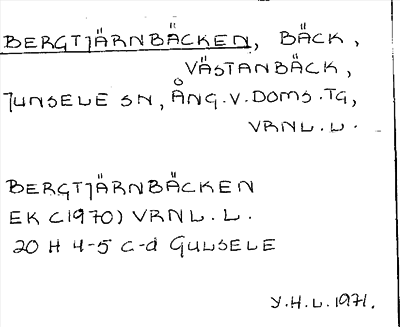 BERGTJÄRNBÄCKEN, BÄCK,
VÄSTANBÄCK,
JUNSELE SN, ÅNG.V.DOMS.TG,
VRNL.L.
BERGTJÄRNBÄCKEN
EK (1970) VRNL.L.
20 H 4-5 c-d GULSELE
Y.H.L.1971.